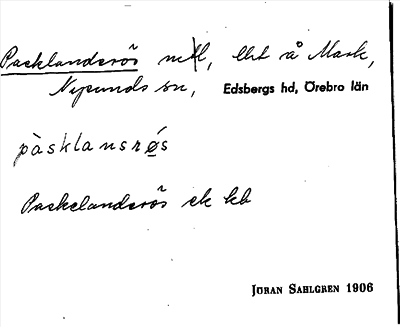 Pasklandsrös mtl, Ebt på Mark,
Nysunds sn, Edsbergs hd, Örebro län
pàsklansrøs
Paskelandsrös ek kb
JÖRAN SAHLGREN 1906